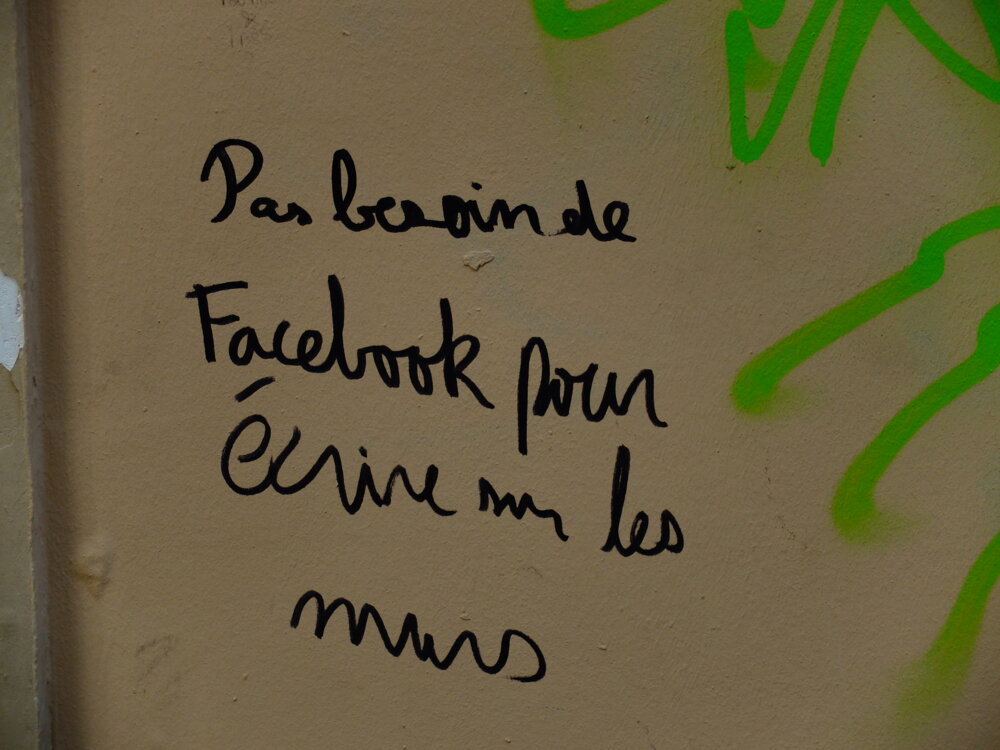 Pas besoin de
Facebook pour
écrire sur les
murs